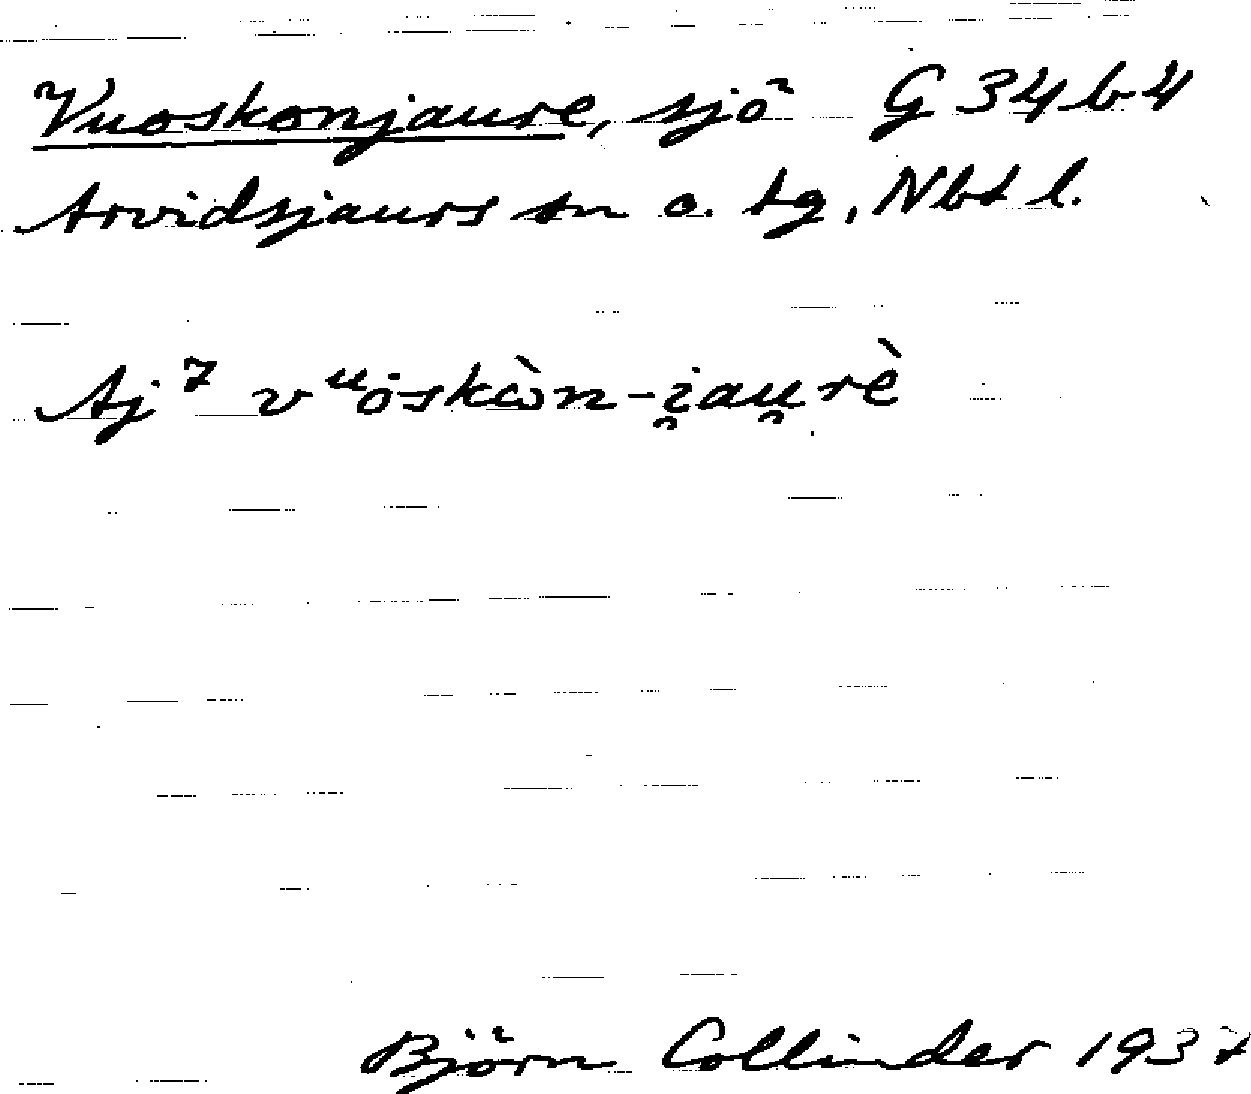 Vuoskonjaure, sjö G 34 b 4
Arvidsjaurs sn o. tg, Nbt l.
Aj⁷ vᵘȯskὼn-i̯au̯rè
Björn Collinder 1937